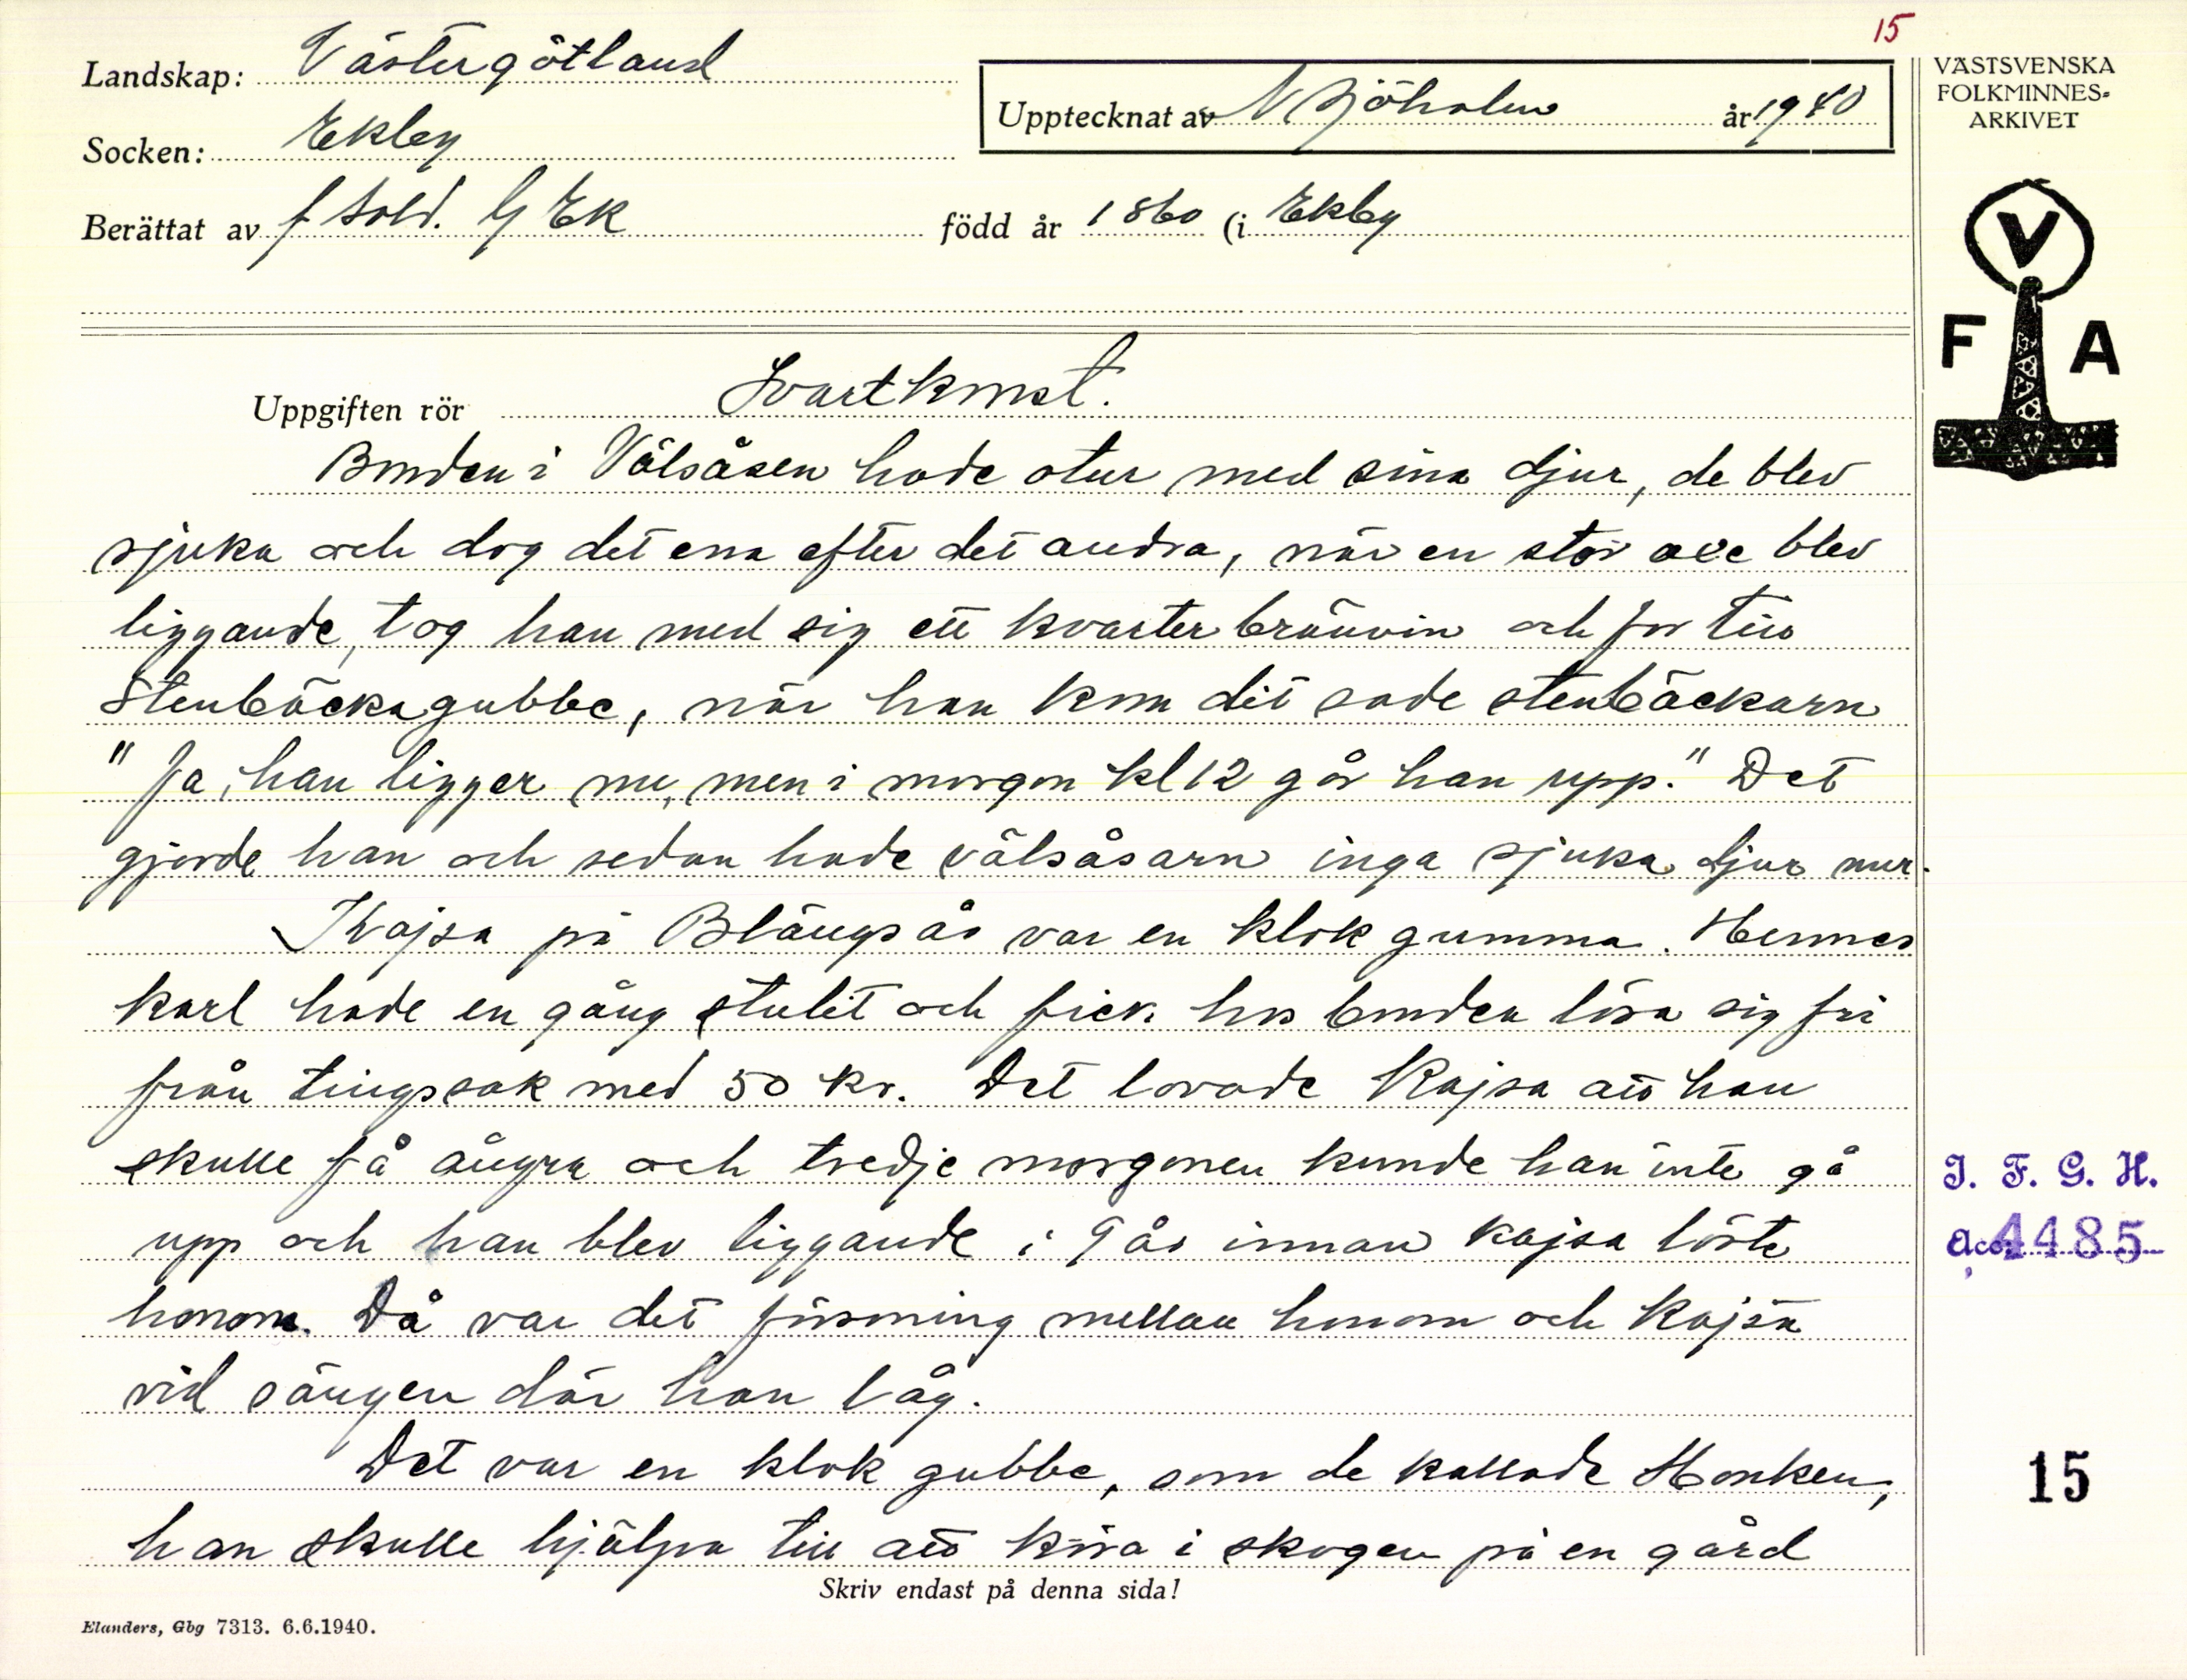 15
Landskap: Västergötland
Upptecknat av N Sjöholm år 1940
VÄSTSVENSKA
FOLKMINNES-
ARKIVET
Socken: Ekby
Berättat av f sold. G Ek född år 1860 (i Ekby
V
F A
Uppgiften rör Svartkonst.
Bonden i Välsåsen hade otur med sina djur, de blev
sjuka och dog det ena efter det andra, när en stor oxe blev
liggande, tog han med sig ett kvarter brännvin och for till
Stenbäckagubbe, när han kom dit sade stenbäckarn
" Ja, han ligger nu, men i morgon kl 12 går han upp." Det
gjorde han och sedan hade välsåsarn inga sjuka djur mer.
Kajsa på Blängsås var en klok gumma. Hennes
karl hade en gång stulit och fick hos bonden lösa sig fri
från tingssak med 50 kr. Det lovade Kajsa att han
skulle få ångra och tredje morgonen kunde han inte gå
upp och han blev liggande i 9 år innan Kajsa löste
honom. Då var det försoning mellan honom och Kajsa
vid sängen där han låg.
Det var en klok gubbe, som de kallade Honken,
han skulle hjälpa till att köra i skogen på en gård
Skriv endast på denna sida!
Elanders, Gbg 7313. 6.6.1940.
I. F. G. H.
Acc. 4485
15